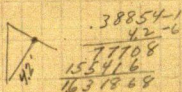 .38854-1
4.2 -6
77708
155416
1631868
4.2